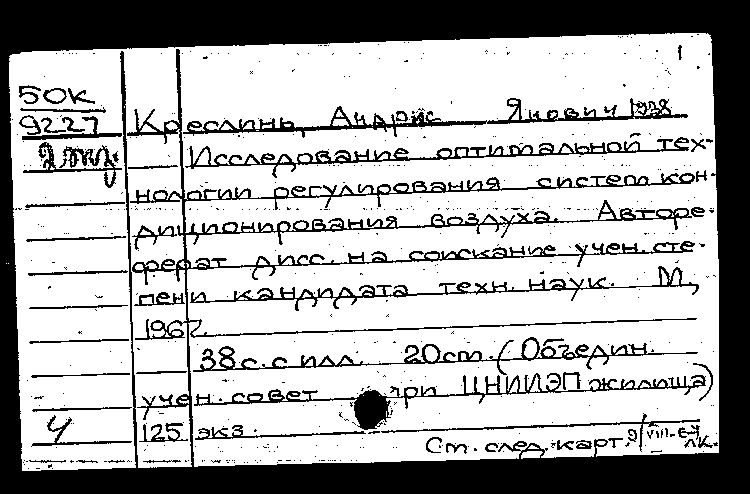 1
50К
9227 Креслинь, Андрис Янович 1938
2 экз. Исследование оптимальной тех-
нологии регулирования систем кон-
диционирования воздуха. Авторе-
ферат дисс. на соискание учен. сте-
пени кандидата техн. наук. М.,
1967.
38 с. с илл. 20 см. (Объедин.
учен. совет при ЦНИИЭП жилища)
Ч 125 экз.
См. след. карт.